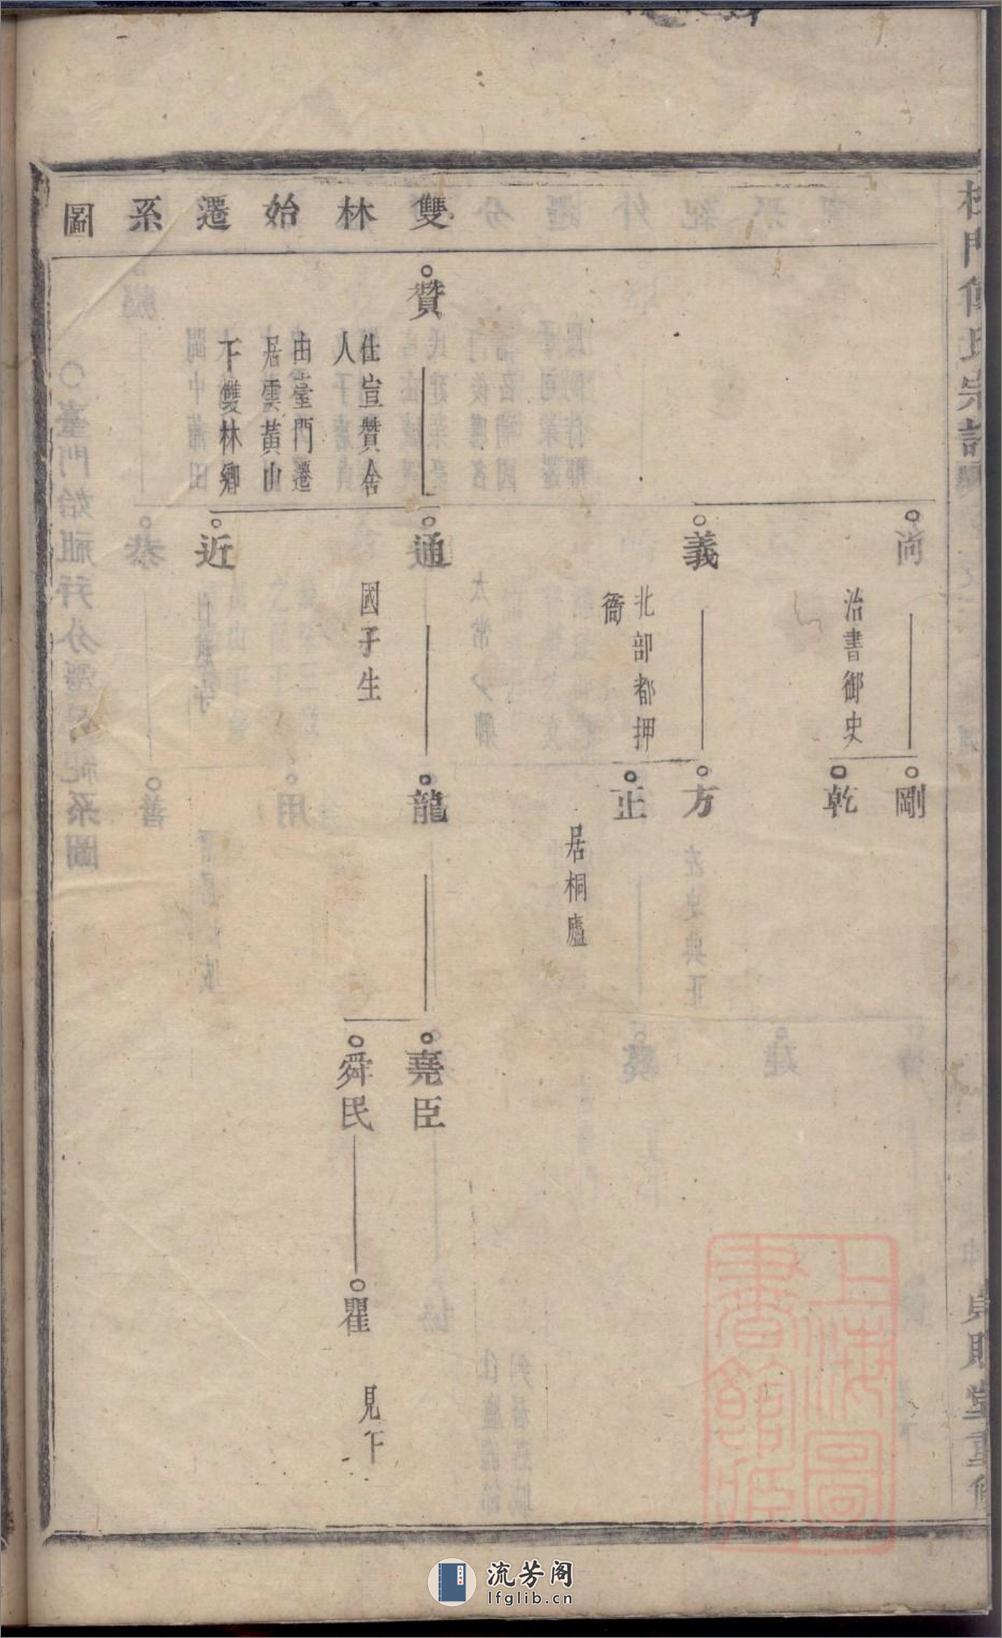 雙林始遷系圖
贊
仕宣贊舍
人
由臺門遷
居雲黃山
下雙林鄉
尚
義
通
近
治書御史
北部都押
衙
國子生
剛
乾
方
正
龍
居桐廬
堯臣
舜民
瞿
見下
門傅氏宗譜
貞則堂重修
上海圖書館藏
流芳阁
lfglib.cn